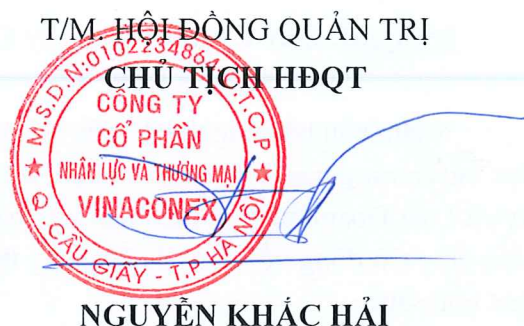 T/M. HỘI ĐỒNG QUẢN TRỊ
CHỦ TỊCH HĐQT
M.S.D.N:0102234864-C.T.C.P
CÔNG TY
CỔ PHẦN
NHÂN LỰC VÀ THƯƠNG MẠI
VINACONEX
Q. CẦU GIẤY - T.P HÀ NỘI
NGUYỄN KHẮC HẢI